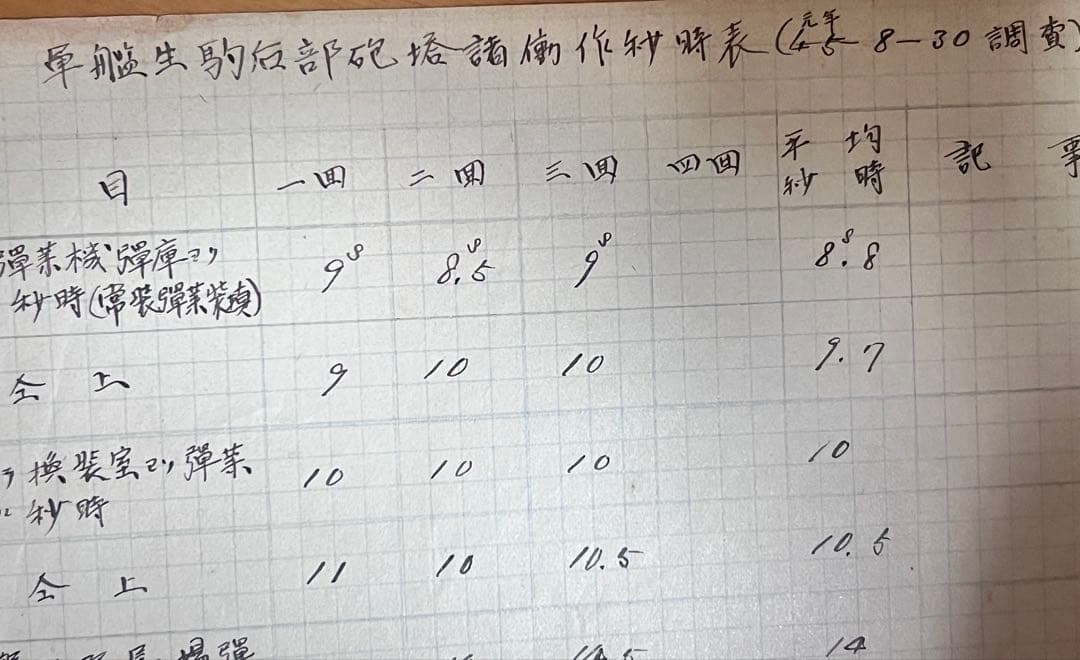 軍艦生駒后部砲塔諸働作秒時表(45 元年 8-30 調査)
目 一回 二回 三回 四回 平均秒時 記事
彈薬機彈庫ヨリ 9ˢ 8.5ˢ 9ˢ 8.8ˢ
秒時(常装彈薬装填)
仝上 9 10 10 9.7
換装室ヨリ彈薬 10 10 10 10
秒時
仝上 11 10 10.5 10.5
揚彈 14